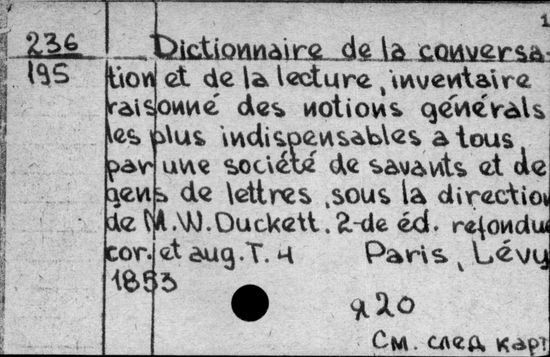 1
236 Dictionnaire de la conversa-
195 tion et de la lecture, inventaire
raisonné des notions générals
les plus indispensables a tous,
par une société de savants et de
gens de lettres, sous la direction
de M.W. Duckett. 2-de éd. refondue
cor. et aug. T. 4 Paris, Lévy
1853
я 20
См. след карт